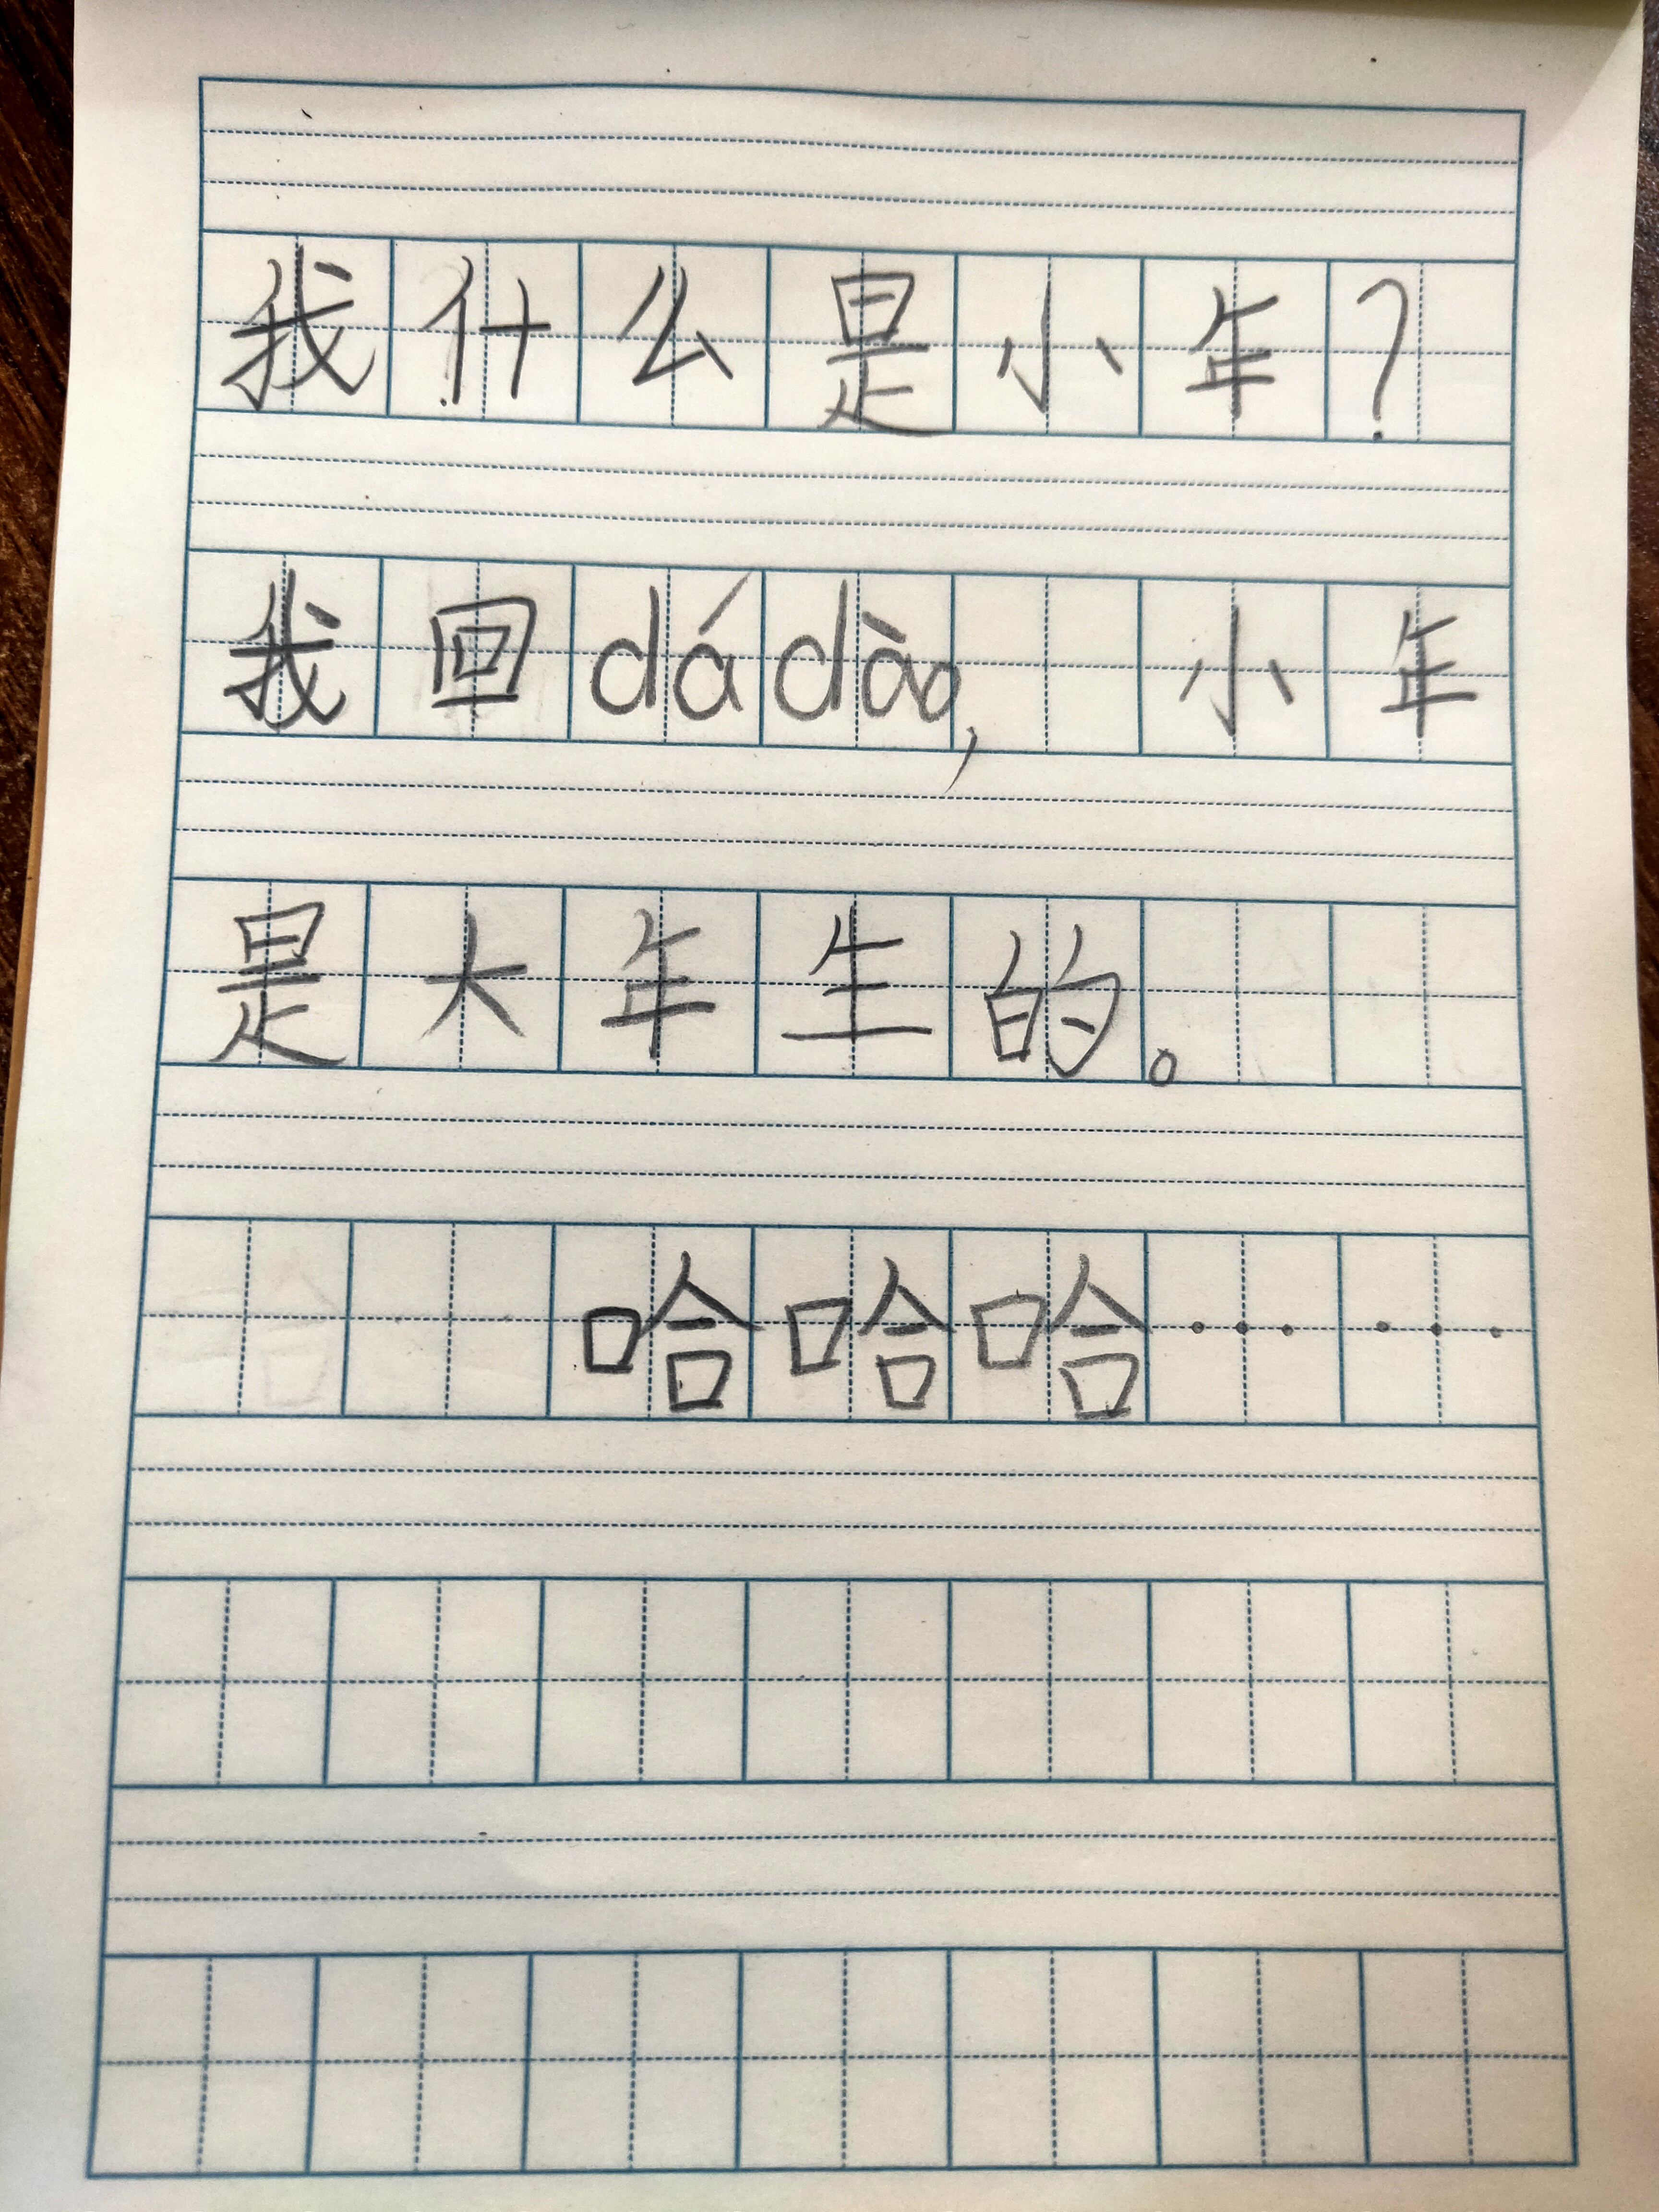 我什么是小年?
我回dádào, 小年
是大年生的。
哈哈哈……